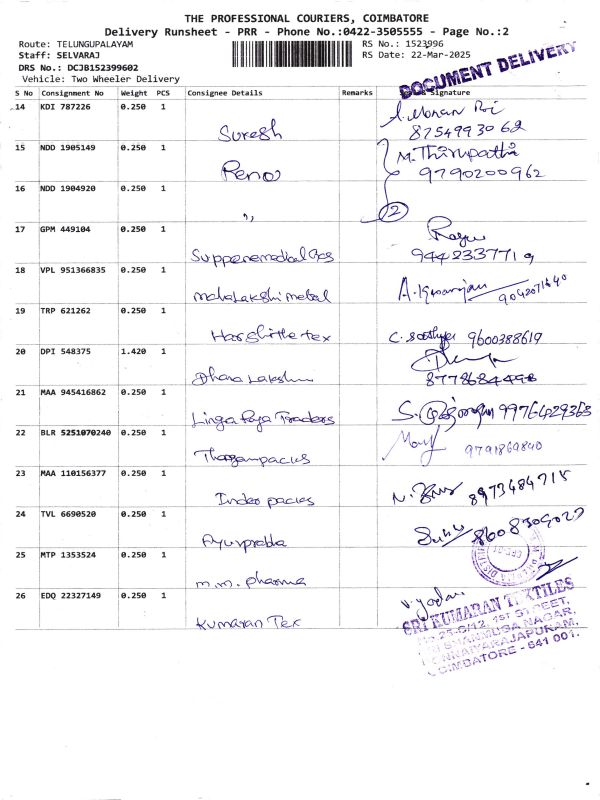 THE PROFESSIONAL COURIERS, COIMBATORE
Delivery Runsheet - PRR - Phone No.:0422-3505555 - Page No.:2
Route: TELUNGUPALAYAM
RS No.: 1523996
Staff: SELVARAJ
RS Date: 22-Mar-2025
DRS No.: DCJB152399602
Vehicle: Two Wheeler Delivery
DOCUMENT DELIVERY
S No Consignment No Weight PCS Consignee Details Remarks Signature
14 KDI 787226 0.250 1 Suresh
8754993062
15 NDD 1905149 0.250 1 Reno M. Thirupathi
9790200962
16 NDD 1904920 0.250 1 ,, 2
17 GPM 449104 0.250 1
9442337719
18 VPL 951366835 0.250 1 mahalakshmi metal
9042071640
19 TRP 621262 0.250 1 Harshithe tex
9600388619
20 DPI 548375 1.420 1 Dhana Lakshmi
21 MAA 945416862 0.250 1 Traders
9976429363
22 BLR 5251070240 0.250 1
9791869840
23 MAA 110156377 0.250 1 packs
8973484718
24 TVL 6690520 0.250 1 Ayurprabha
25 MTP 1353524 0.250 1 m.m. pharma
26 EDQ 22327149 0.250 1 Kumaran Tex
SRI KUMARAN TEXTILES
1ST STREET,
SHANMUGA NAGAR,
COIMBATORE - 641 001.